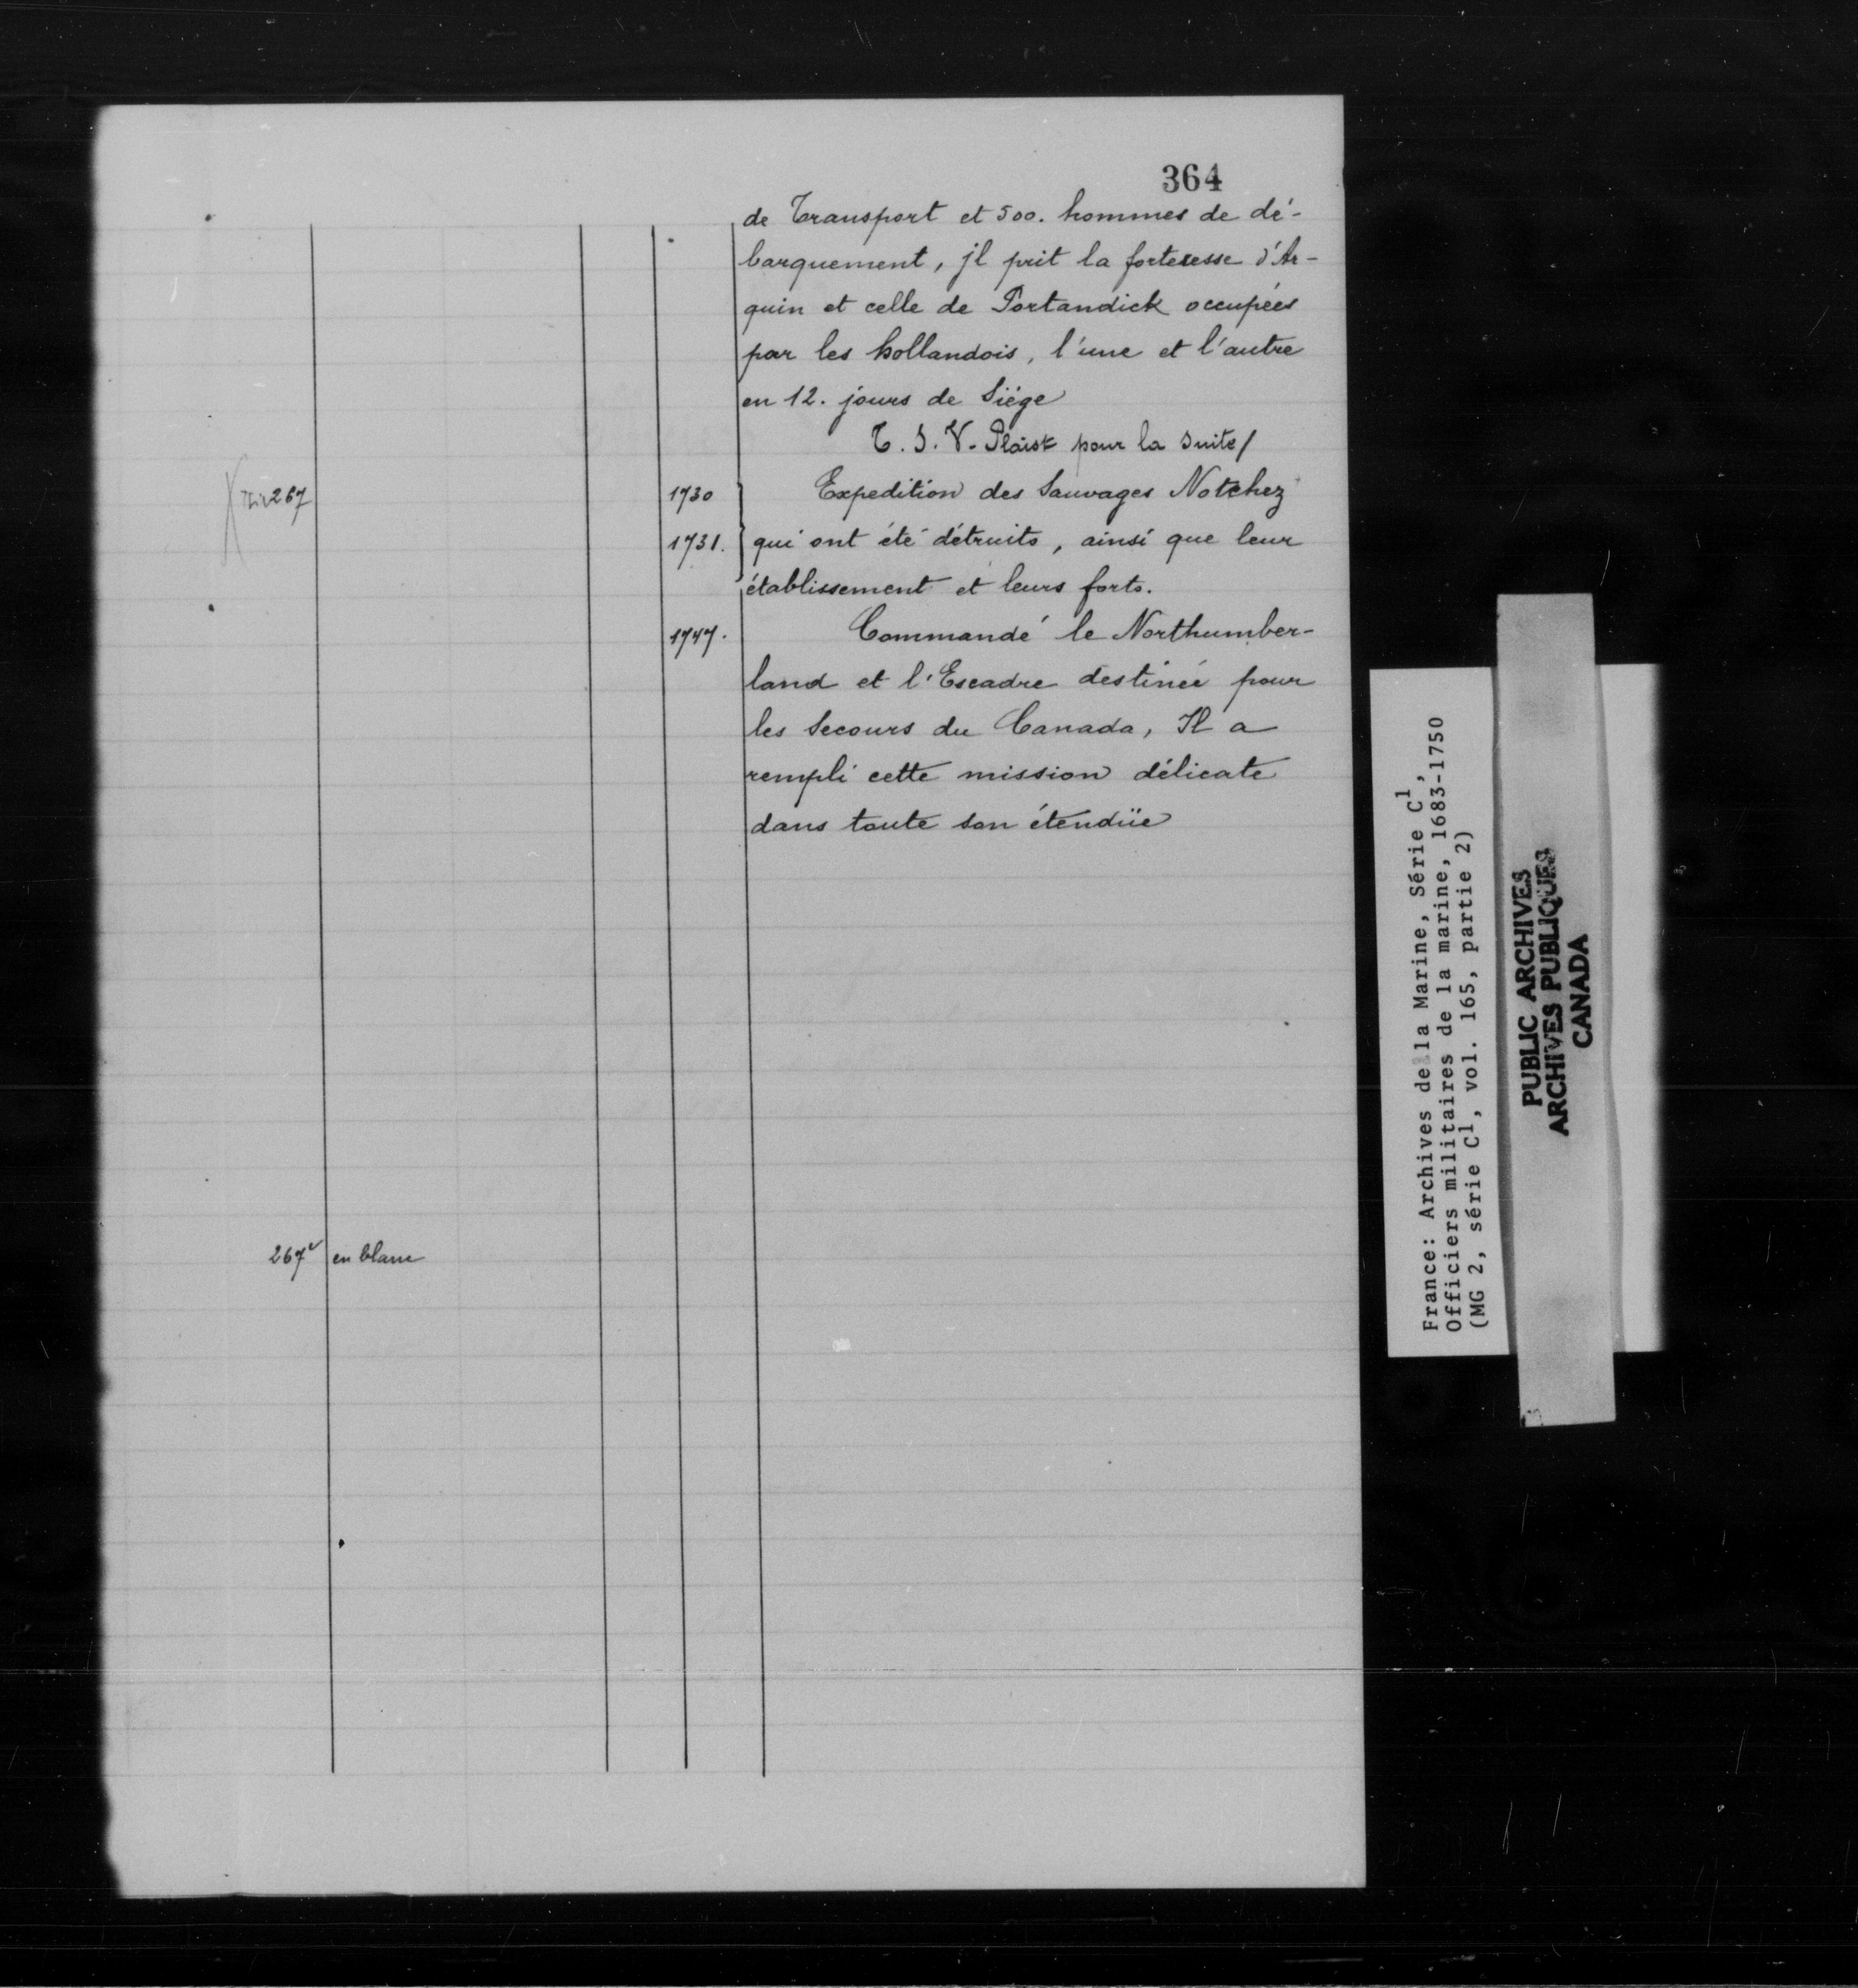 364
de Transport et 500. hommes de dé-
barquement, jl prit la forteresse d'Ar-
guin et celle de Portandick occupées
par les hollandois, l'une et l'autre
en 12. jours de Siége
T. S. V. Plaist pour la suite/
267
1730 Expedition des Sauvages Notchez
1731. qui ont été détruits, ainsi que leur
établissement et leurs forts.
1747. Commandé le Northumber-
land et l'Escadre destinée pour
les Secours du Canada, Il a
rempli cette mission délicate
dans toute son étendüe
267v en blanc
France: Archives de la Marine, Série C1,
Officiers militaires de la marine, 1683-1750
(MG 2, série C1, vol. 165, partie 2)
PUBLIC ARCHIVES
ARCHIVES PUBLIQUES
CANADA